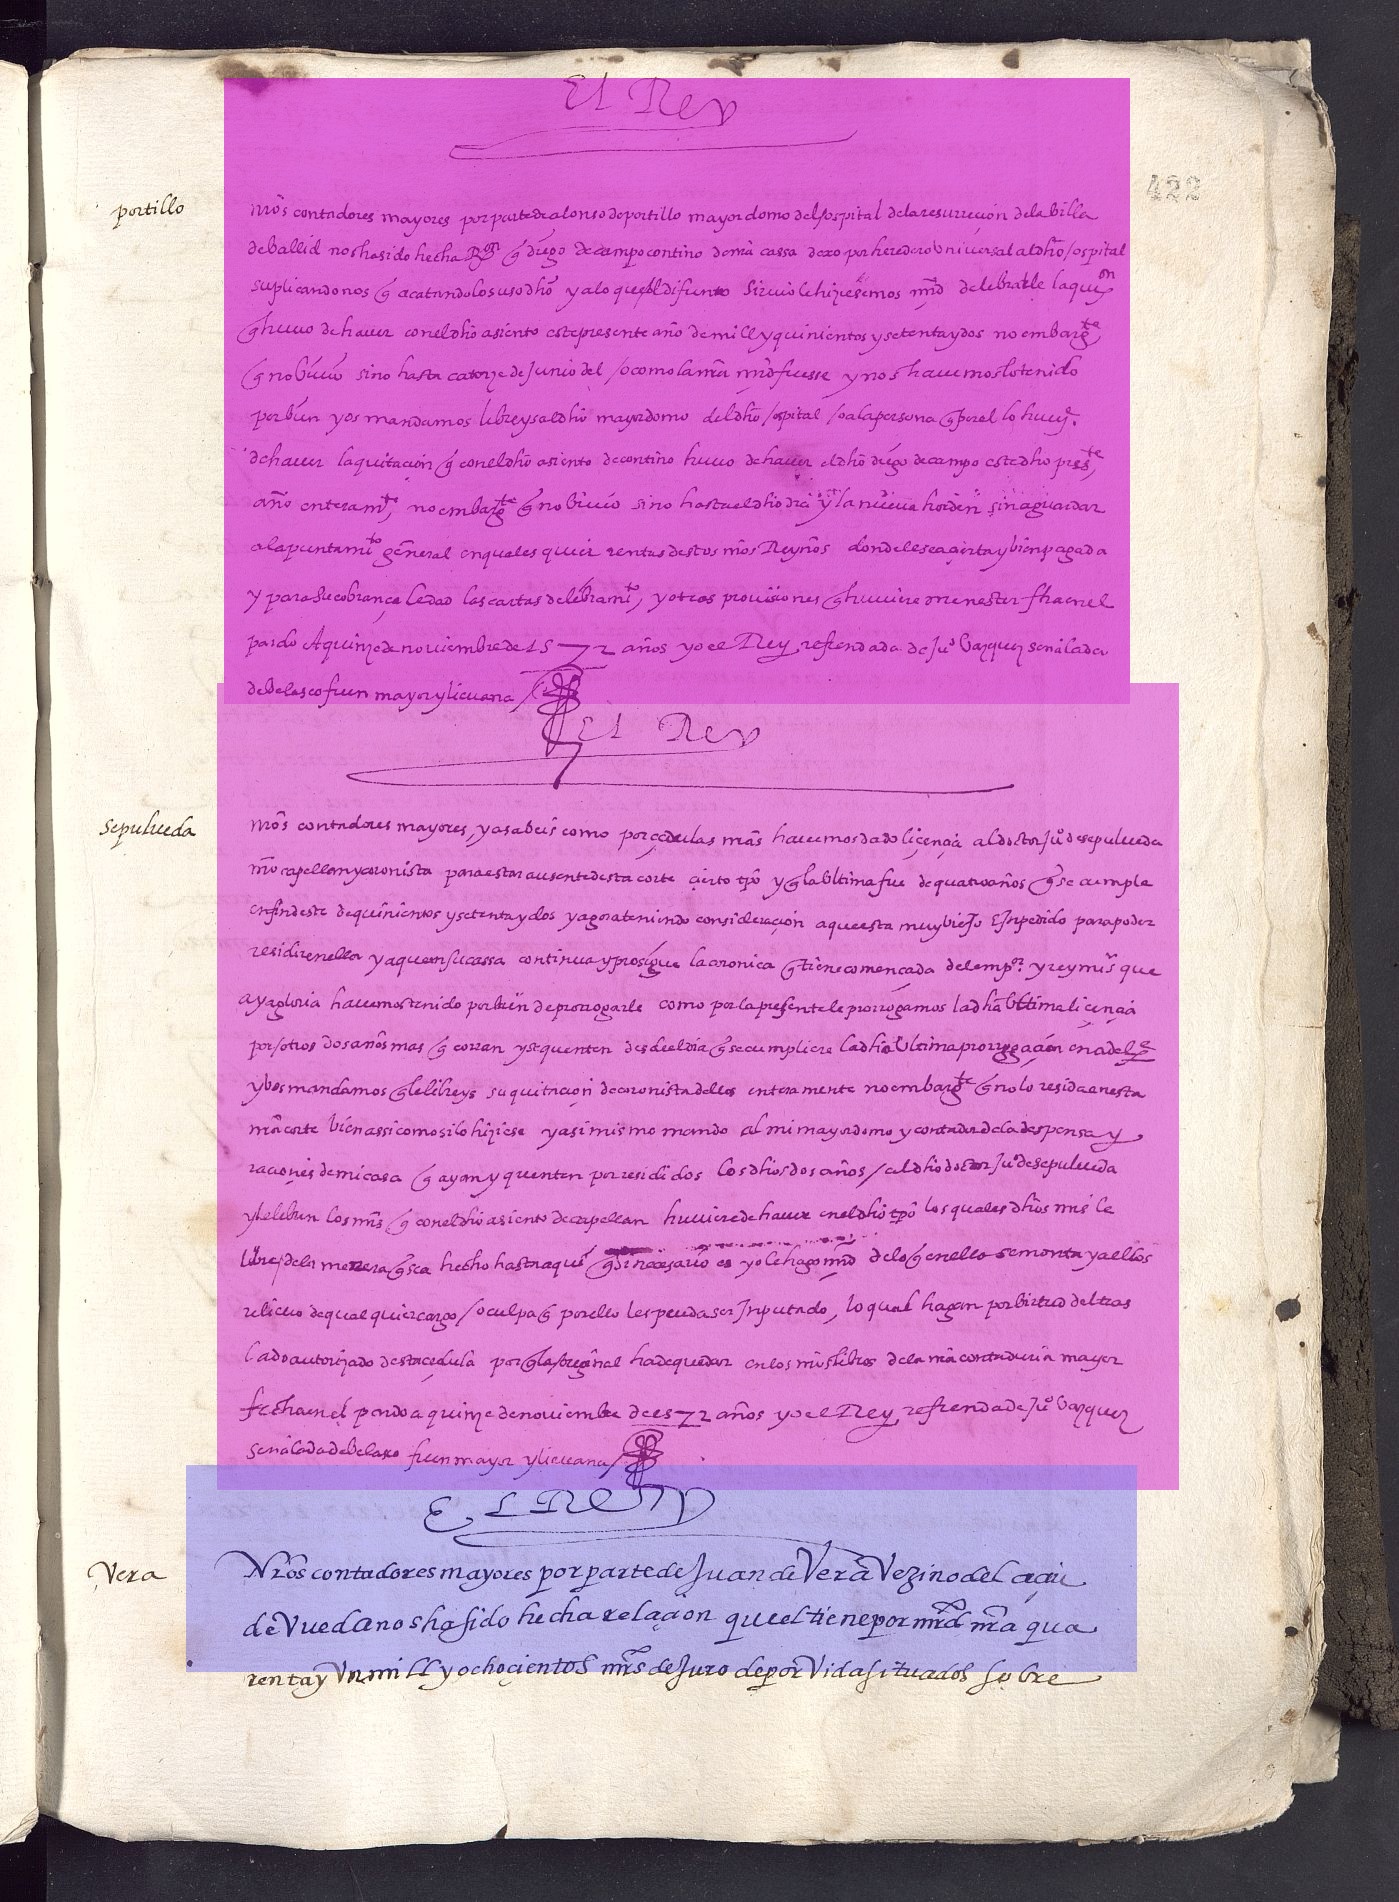 El Rey
422
portillo
nr̃os contadores mayores por parte de alonso de portillo mayordomo del ospital de la resurreçion de la billa
de ballid nos ha sido hecha Ron q̃ diego de campo contino de mi cassa dexo por heredero universal al dho ospital
suplicandonos q̃ acatando lo suso dho y a lo que el difunto sirvio le hiziesemos mrd de lebrarle la quion
q̃ huvo de haver con el dho asiento este presente año de mill y quinientos y setenta y dos no embargte
q̃ no bivio sino hasta catorze de Junio del / o como la nra mrd fuesse y nos havemos lo tenido
por bien y os mandamos libreys al dho mayordomo del dho ospital / o a la persona q̃ por el lo huvre
de haver la quitacion q̃ con el dho asiento de contino huvo de haver el dho diego de campo este dho preste
año enteramte, no embargte q̃ no bivio sino hasta el dho dia y la nueva horden sin aguardar
al apuntamto general en qualesquier rentas destos nros Reynos donde le sea çierta y bien pagada
y para su cobrança le dad las cartas de lebramto, y otras provisiones q̃ huviere menester fha en el
pardo A quinze de noviembre de 1572 años yo el Rey refrendada de Juo Vazquez señalada
de Belasco fuen mayor y lievana
El Rey
sepulveda
nr̃os contadores mayores, ya sabeis como por çedulas nras havemos dado liçençia al doctor Juo de sepulveda
nro capellan y coronista para estar ausente desta corte çierto tpo y q̃ la ultima fue de quatro años q̃ se cumple
en fin deste de quinientos y setenta y dos y agora teniendo consideraçion a que esta muy biejo E Inpedido para poder
residir en ella y a que en su cassa continua y prosigue la coronica q̃ tiene començada del empor y rey mi sr que
aya gloria havemos tenido por bien de prorrogarle como por la presente le prorrogamos la dha ultima liçençia
por otros dos años mas q̃ corran y se quenten desde el dia q̃ se cumpliere la dha ultima prorrogaçion en adelte
y vos mandamos q̃ le libreys su quitacion de coronista dellos enteramente no embargte q̃ no lo resida en esta
nra corte bien assi como si lo hiziese y asimismo mando al mi mayordomo y contador de la despensa y
raçiones de mi casa q̃ ayan y quenten por residi dos los dhos dos años / al dho doctor Juo de sepulveda
y le lebren los mrs q̃ con el dho asiento de capellan huviere de haver en el dho tpo los quales dhos mrs le
libre de la manera q̃ sea hecho hasta aqui q̃ si neçesario es yo le hago mrd de lo q̃ en ello se monta y a ellos
relievo de qualquier cargo / o culpa q̃ por ello les pueda ser Inputado, lo qual hagan por birtud del tras
lado autorizado desta çedula por q̃ la original ha de quedar en los mis libros de la mia contaduria mayor
fecha en el pardo a quinze de noviembre de 1572 años yo el Rey refrendada de Juo Vazquez
señalada de Belasco fuen mayor y lievana
EL Rey
Vera
Nr̃os contadores mayores por parte de Juan de Vera Vezino de la çiu
de Vueda nos ha sido hecha relaçion que el tiene por mrd nra qua
renta y Un mill y ochoçientos mrs de Juro de por Vida situados sobre